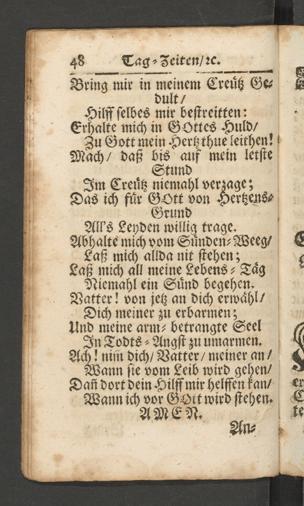 48 Tag-Zeiten/ꝛc.
Bring mir in meinem Creütz Ge-
dult/
Hilff selbes mir bestreitten:
Erhalte mich in GOttes Huld/
Zu Gott mein Hertz thue leithen!
Mach/ daß bis auf mein letste
Stund
Im Creütz niemahl verzage;
Das ich für GOtt von Hertzens-
Grund
All's Leyden willig trage.
Abhalte mich vom Sünden-Weeg/
Laß mich allda nit stehen;
Laß mich all meine Lebens-Täg
Niemahl ein Sünd begehen.
Vatter! von jetz an dich erwähl/
Dich meiner zu erbarmen;
Und meine arm-betrangte Seel
In Todts-Angst zu umarmen.
Ach! nim̄ dich/ Vatter/ meiner an/
Wann sie vom Leib wird gehen/
Dañ dort dein Hilff mir helffen kan/
Wann ich vor GOtt wird stehen.
AMEN.
An-